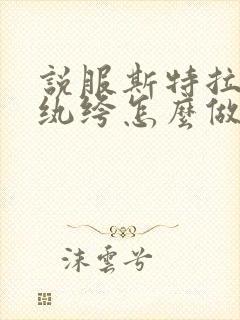 説服斯特拉
纨绔怎麼做
沫雲兮